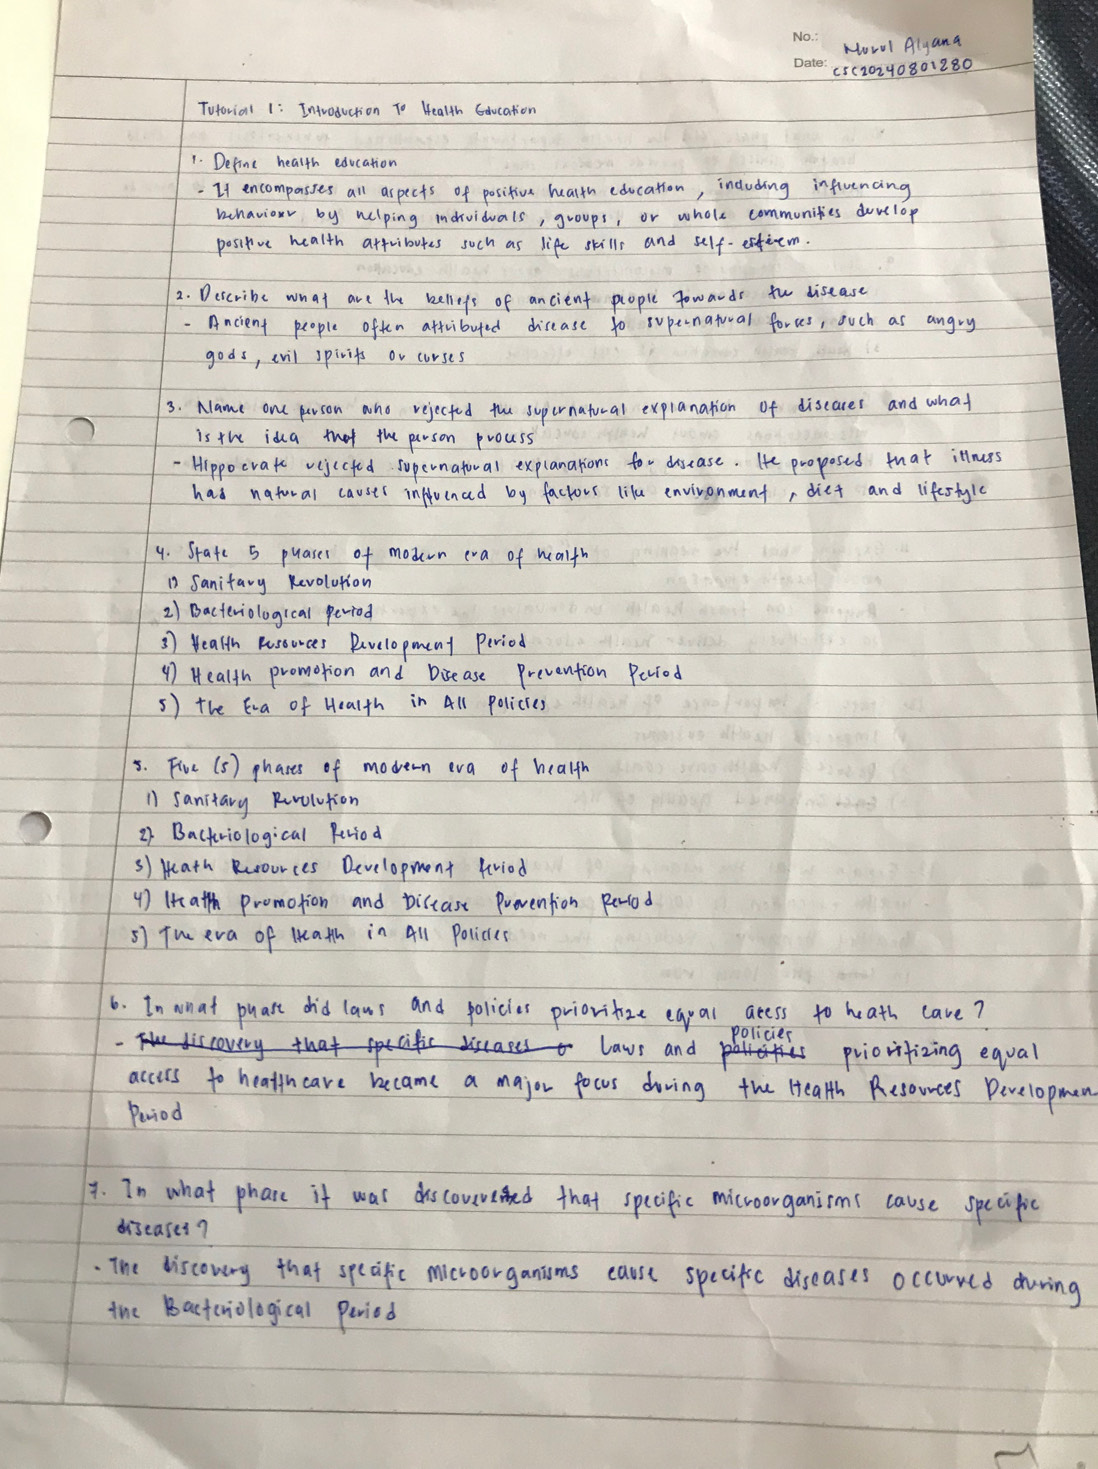 No.:
Nurul Alyana
Date: CSC20240801280
Tutorial 1: Introduction To Health Education
1. Define health education
- It encompasses all aspects of positive health education, including influencing
behaviour by helping individuals, groups, or whole communities develop
positive health attributes such as life skills and self-esteem.
2. Describe what are the beliefs of ancient people towards the disease
- Ancient people often attributed disease to supernatural forces, such as angry
gods, evil spirits or curses
3. Name one person who rejected the supernatural explanation of diseases and what
is the idea that the person process
- Hippocrate rejected supernatural explanations for disease. He proposed that illness
had natural causes influenced by factors like environment, diet and lifestyle
4. State 5 phases of modern era of health
1) Sanitary Revolution
2) Bacteriological Period
3) Health Resources Development Period
4) Health promotion and Disease Prevention Period
5) The Era of Health in All Policies
5. Five (5) phases of modern era of health
1) Sanitary Revolution
2) Bacteriological Period
3) Heath Resources Development Period
4) Health Promotion and Disease Prevention Period
5) The era of Health in All Policies
6. In what phase did laws and policies prioritize equal acess to heath care?
policies
- The discovery that specific diseases o Laws and policities prioritizing equal
access to healthcare became a major focus during the Health Resources Developmen
Period
7. In what phase it was discovered that specific microorganisms cause specific
diseases?
- The discovery that specific microorganisms cause specific diseases occurred during
the Bacteriological Period